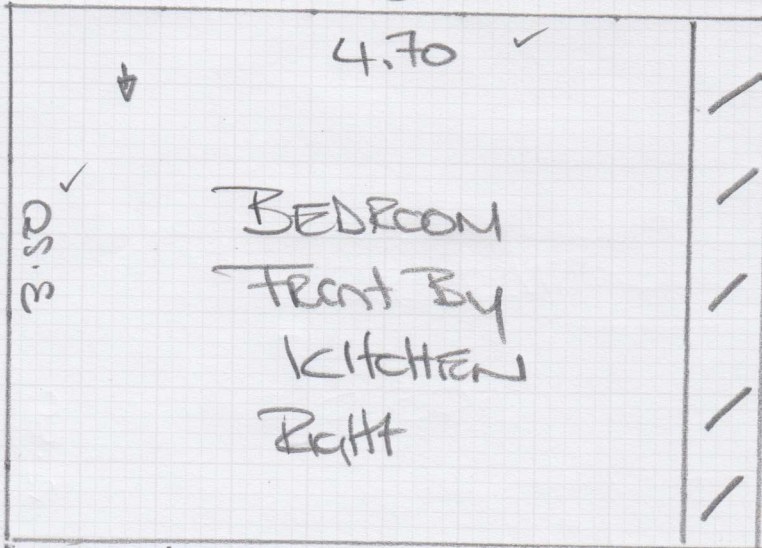 4.70
3.50
BEDROOM
FRont By
KItCHEN
RigHt